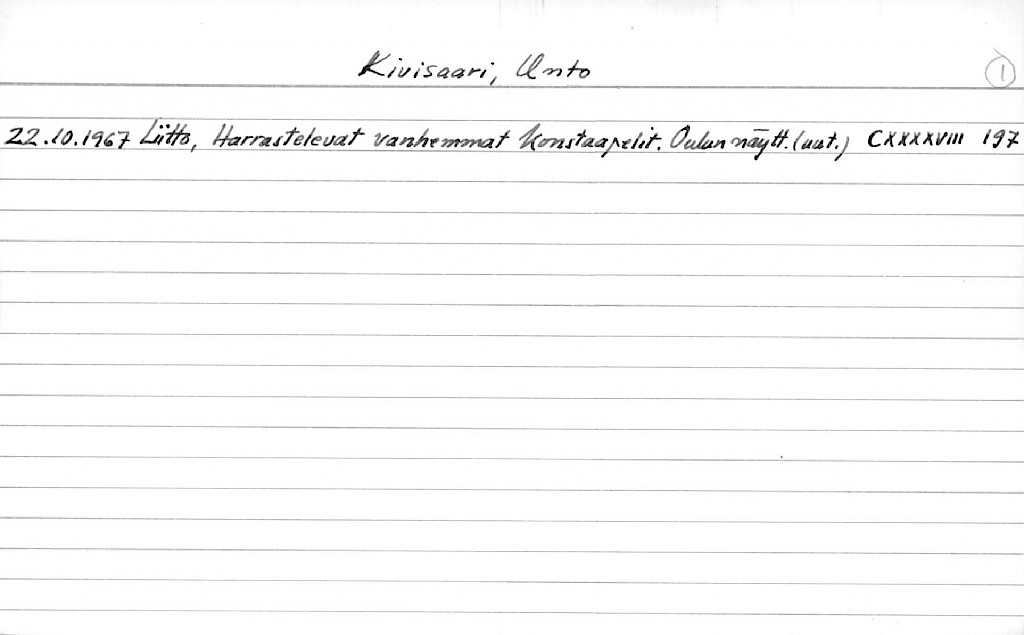 Kivisaari, Unto 1
22.10.1967 Liitto, Harrastelevat vanhemmat konstaapelit. Oulun näytt. (uut.) CXXXXVIII 197